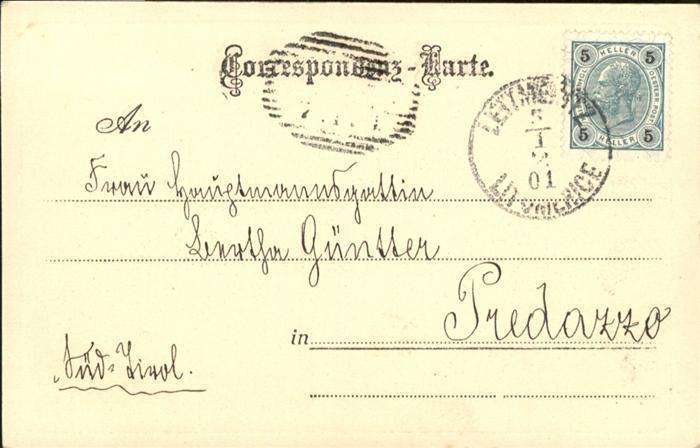 Correspondenz-Karte.
5 HELLER 5
5 HELLER 5
LEITMERITZ
5
I
01
LITOMĚŘICE
An
Frau Hauptmannsgattin
Bertha Günther
in Predazzo
Süd-Tirol.